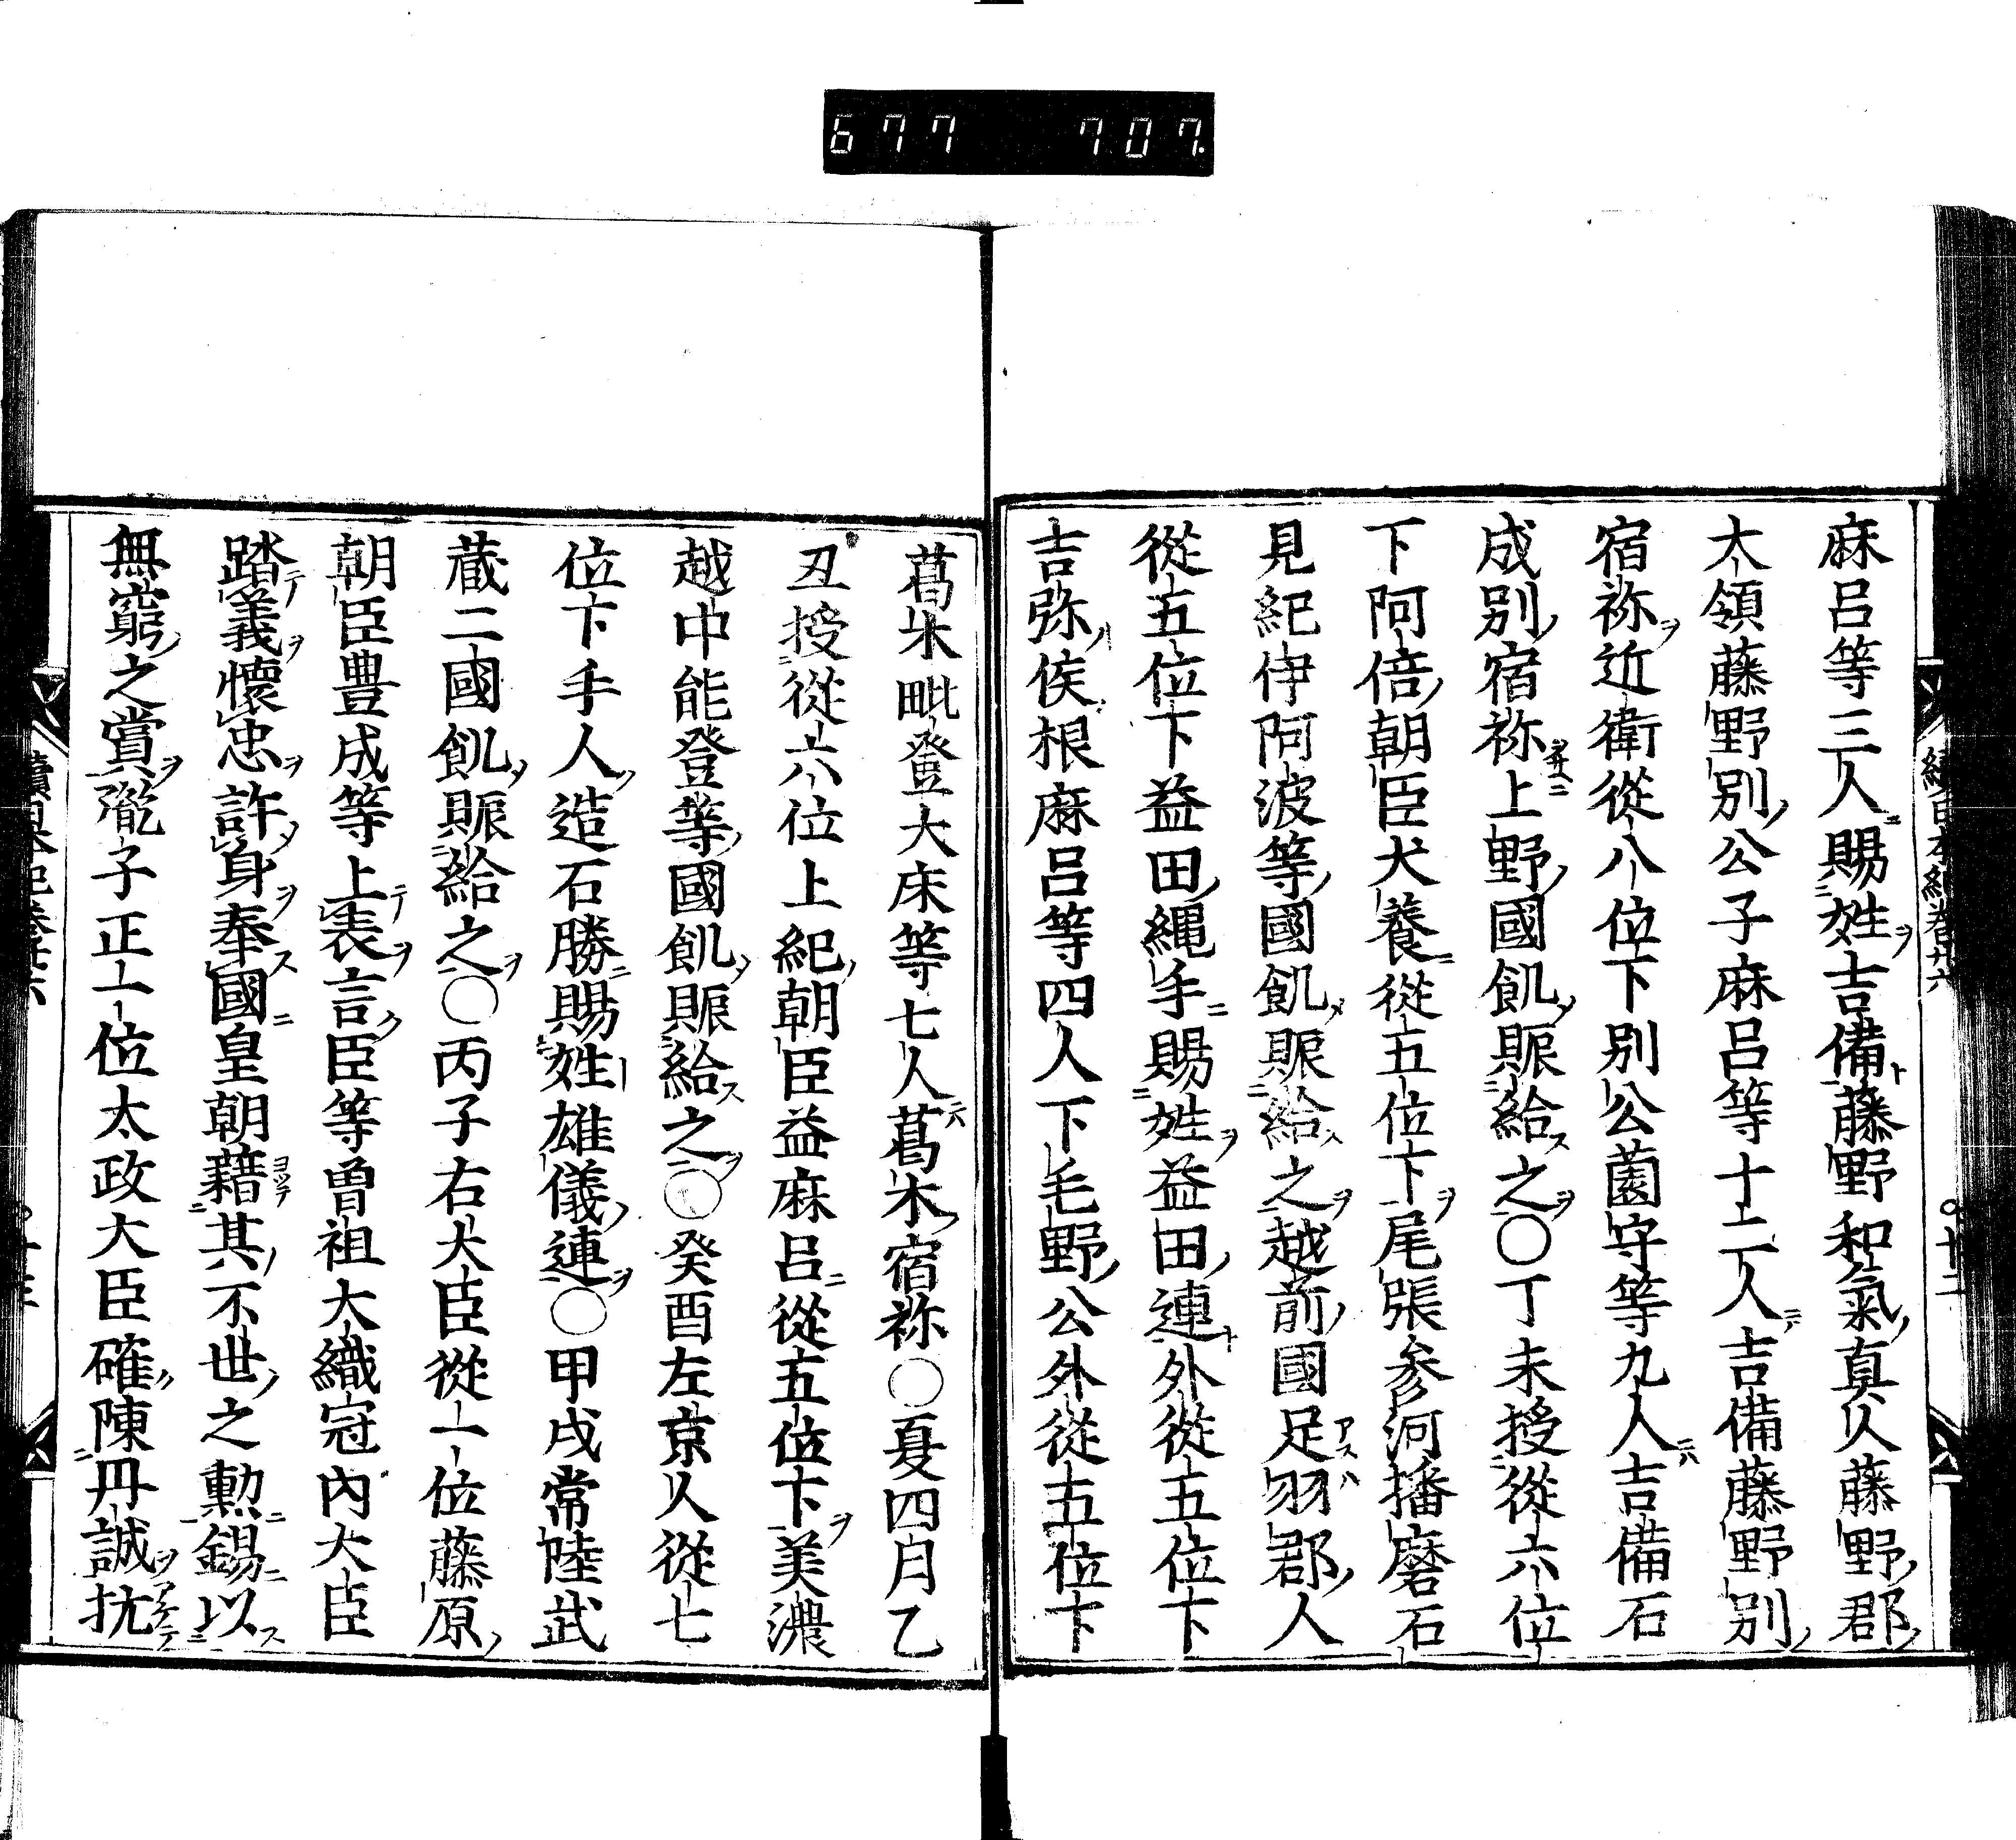 677 707.
麻呂等三人賜姓吉備藤野和氣真人藤野郡
大領藤野別公子麻呂等十二人吉備藤野別
宿祢近衛從八位下別公薗守等九人吉備石
成別宿祢上野國飢賑給之〇丁未授從六位
下阿倍朝臣犬養從五位下尾張参河播磨石
見紀伊阿波等國飢賑給之越前國足羽郡人
從五位下益田縄手賜姓益田連外從五位下
吉弥侯根麻呂等四人下毛野公外從五位下
葛木毗登大床等七人葛木宿祢〇夏四月乙
丑授從六位上紀朝臣益麻呂從五位下美濃
越中能登等國飢賑給之〇癸酉左京人從七
位下手人造石勝賜姓雄儀連〇甲戌常陸武
蔵二國飢賑給之〇丙子右大臣從一位藤原
朝臣豊成等上表言臣等曽祖大織冠內大臣
踏義懷忠許身奉國皇朝藉其不世之勲錫以
無窮之賞胤子正一位太政大臣確陳丹誠抗